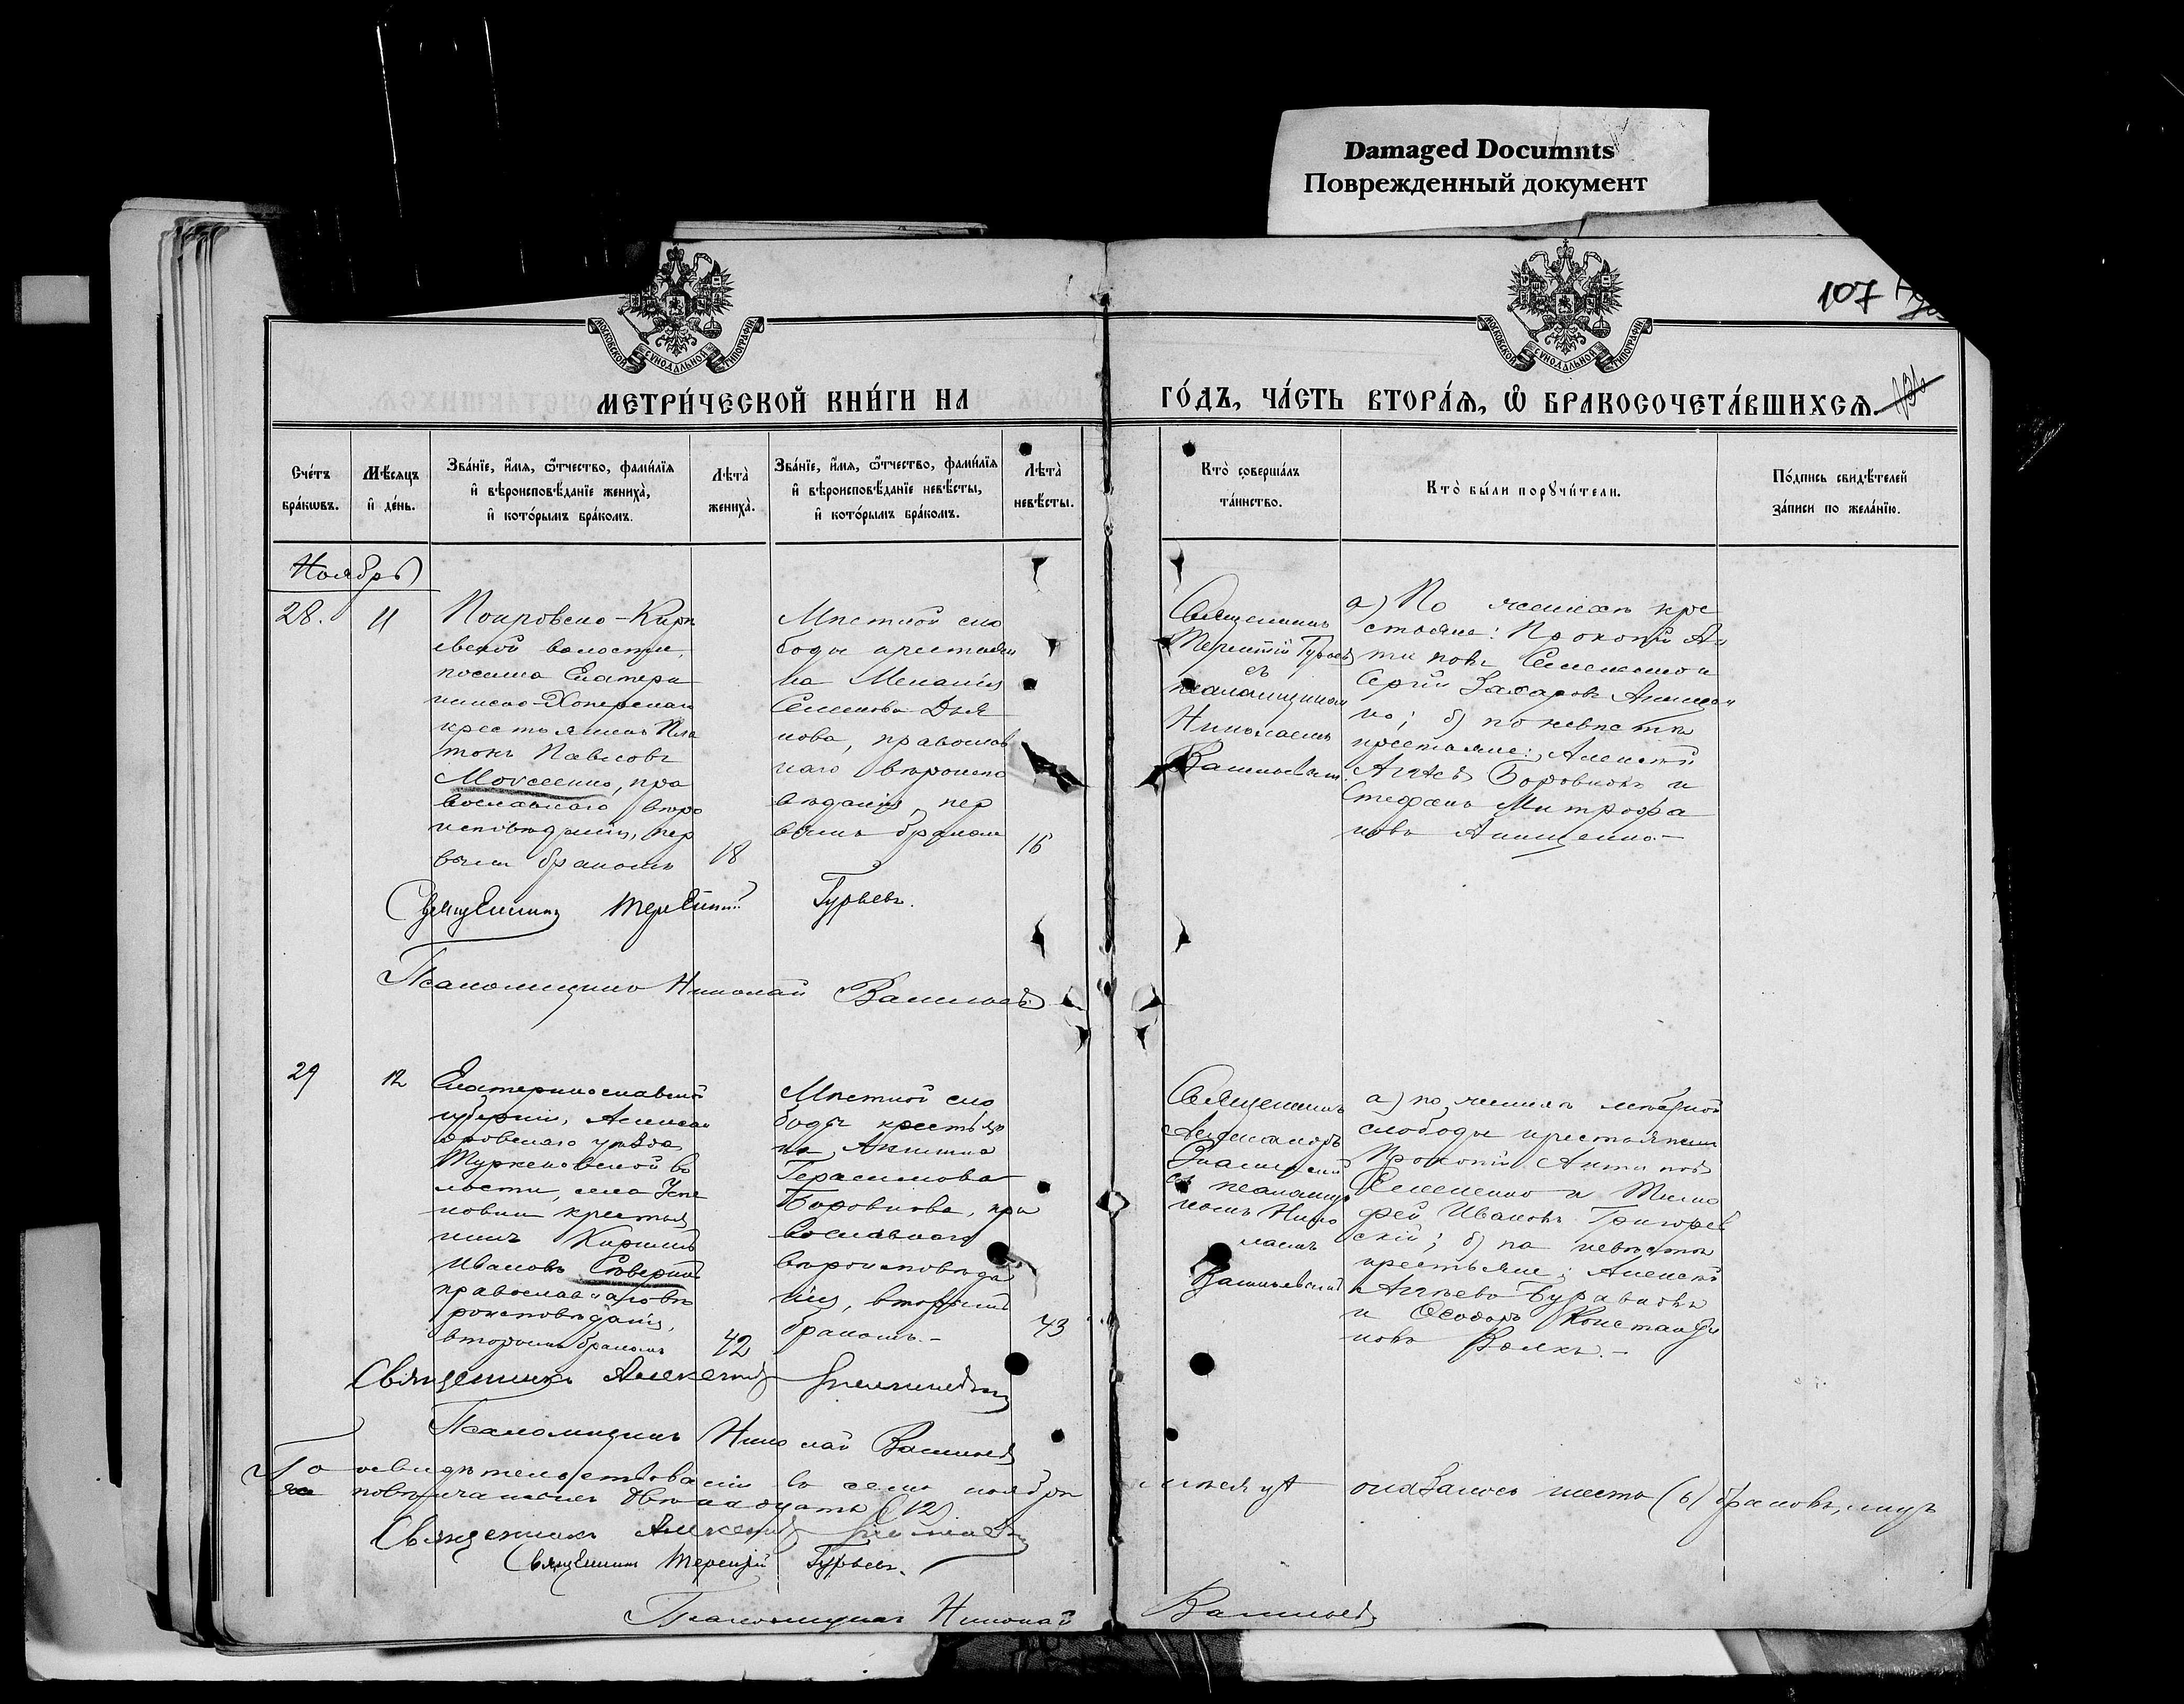 Damaged Documnts
Поврежденный документ
107
МОСКОВСКОЙ СѴНОДАЛЬНОЙ ТИПОГРАФІИ
МОСКОВСКОЙ СѴНОДАЛЬНОЙ ТИПОГРАФІИ
МЕТРИ́ЧЕСКОЙ КНИ́ГИ НА
ГО́ДЪ, ЧА́СТЬ ВТОРА́Ѧ, Ѡ҆ БРАКОСОЧЕТА́ВШИХСѦ.
Счétъ
бра́кѡвъ.
Мѣ́сѧцъ
и҆ де́нь.
Зва́нїе, и҆́мѧ, ѻ҆́тчество, фами́лїѧ
и҆ вѣроисповѣ́данїе жениха̀,
и҆ кото́рымъ бра́комъ.
Лѣта̀
жениха̀.
Зва́нїе, и҆́мѧ, ѻ҆́тчество, фами́лїѧ
и҆ вѣроисповѣ́данїе невѣ́сты,
и҆ кото́рымъ бра́комъ.
Лѣта̀
невѣ́сты.
Кто̀ соверша́лъ
та́инство.
Кто̀ бы́ли порꙋчи́тели.
По́дпись свидѣ́телей
за́писи по жела́нїю.
Ноябрь
28.
11
Покровско-Кири
евской волости,
поселка Екатери
нинско-Хоперскаго
крестьянинъ Пла
тонъ Павловъ
Моисеенко, пра
вославнаго вѣро
исповѣданія, пер
вымъ бракомъ
18
Мѣстной сло
боды крестьян
ка Меланія
Семенова
нова, православ
наго вѣроиспо
вѣданія, пер
вымъ бракомъ
16
Священникъ
Терентій Гурьевъ
съ
псаломщикомъ
Николаемъ
Васильевымъ
а) По женихѣ кре
стьяне: Прокопій Ан
типовъ Семененко и
Сергій Захаровъ Анищен
ко; б) по невѣстѣ
крестьяне: Алексѣй
Боровикъ и
Стефанъ Митрофа
новъ Анищенко.
Священникъ Терентій Гурьевъ.
Псаломщикъ Николай Васильевъ
29
12
Екатеринославской
губерніи, Алексан
дровскаго уѣзда
Туркеновской во
лости, села Успе
новки крестья
нинъ Кириллъ
Ивановъ
православнаго вѣ
роисповѣданія,
вторымъ бракомъ
42
Мѣстной сло
боды крестьян
ка
Герасимова
Боровикова, пра
вославнаго
вѣроисповѣда
нія, вторымъ
бракомъ.
43
Священникъ
съ псаломщи
комъ Нико
лаемъ
Васильевымъ
а) по женихѣ мѣстной
слободы крестьяне
Прокопій Антиповъ
Семененко и Тимо
фей Ивановъ Григорев
скій; б) по невѣстѣ
крестьяне: Алексѣй
и Ѳеодоръ Константи
новъ Волкъ.
Священникъ Алексѣй
Псаломщикъ Николай Васильевъ
По освидѣтельствованіи въ семъ ноябрѣ мѣсяцѣ оказалось шесть (6) браковъ, лицъ
повѣнчанныхъ двѣнадцать (12)
Священникъ Алексѣй
Священникъ Терентій Гурьевъ.
Псаломщикъ Николай Васильевъ